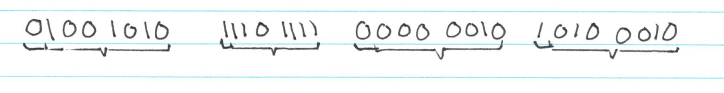 0100 1010 1110 1111 0000 0010 1010 0010